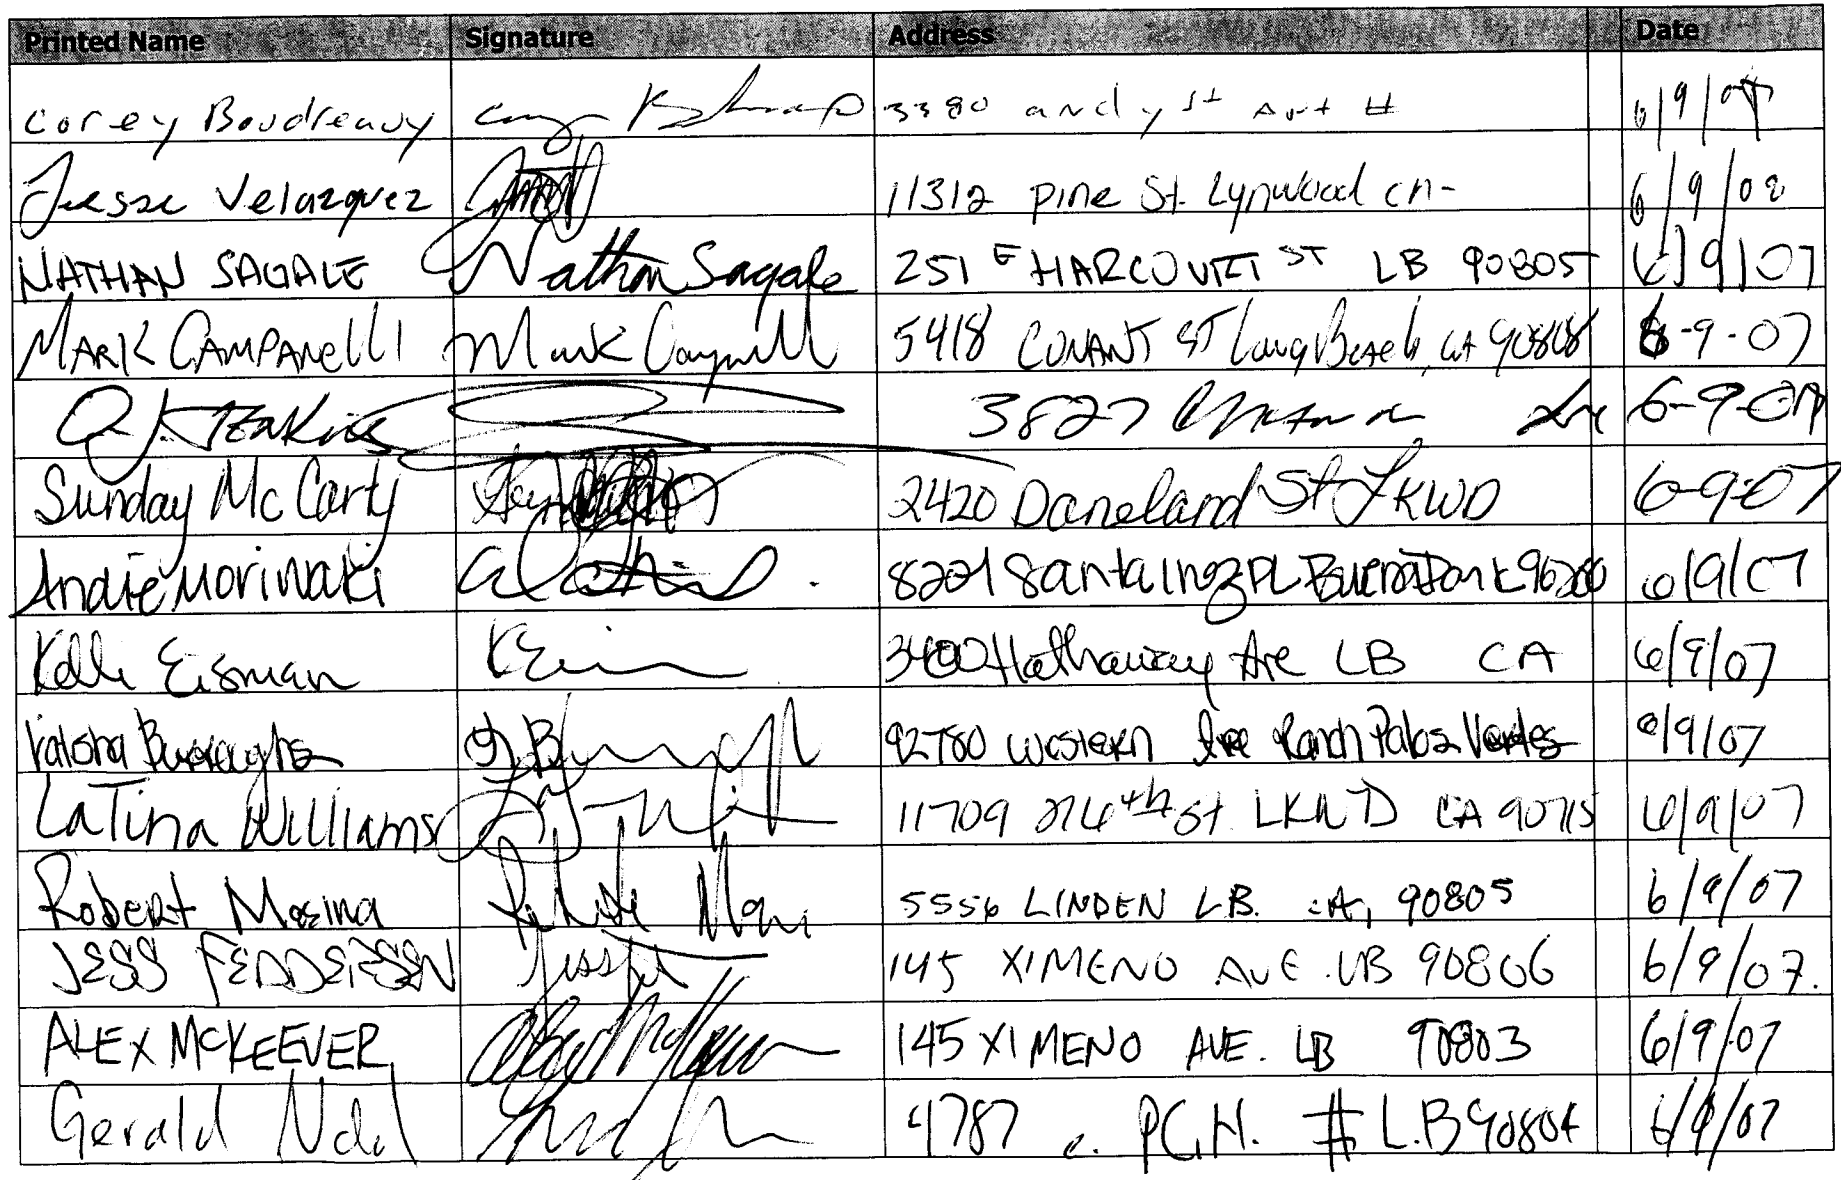 Printed Name Signature Address Date
Corey Boudreauy 3380 andy st Apt # 6/9/07
Jesse Velazquez 11312 Pine St. Lynwood CA- 6/9/08
NATHAN SAGALE Nathan Sagale 251 E HARCOURT ST LB 90805 6/9/07
MARK CAMPANELLI Mark 5418 CONANT ST Long Beach, CA 90808 6-9-07
Jenkins 3827 6-9-07
Sunday McCarty 2420 Daneland St LKWD 6-9-07
Andie Moriwaki 8221 Santa Inez PL Buena Park 6/9/07
Kelli Eisman Hathaway Ave LB CA 6/9/07
Burroughs Western Ave Ranch Palos Verdes 6/9/07
LaTina Williams 11709 216th St. LKWD CA 90715 6/9/07
Robert Mosina 5556 LINDEN L.B. CA, 90805 6/9/07
JESS FEDDERSEN 145 XIMENO AVE. LB 90806 6/9/07.
ALEX McKEEVER Alex McKeever 145 XIMENO AVE. LB 90803 6/9/07
Gerald 4787 e. P.C.H. # L.B 90804 6/9/07